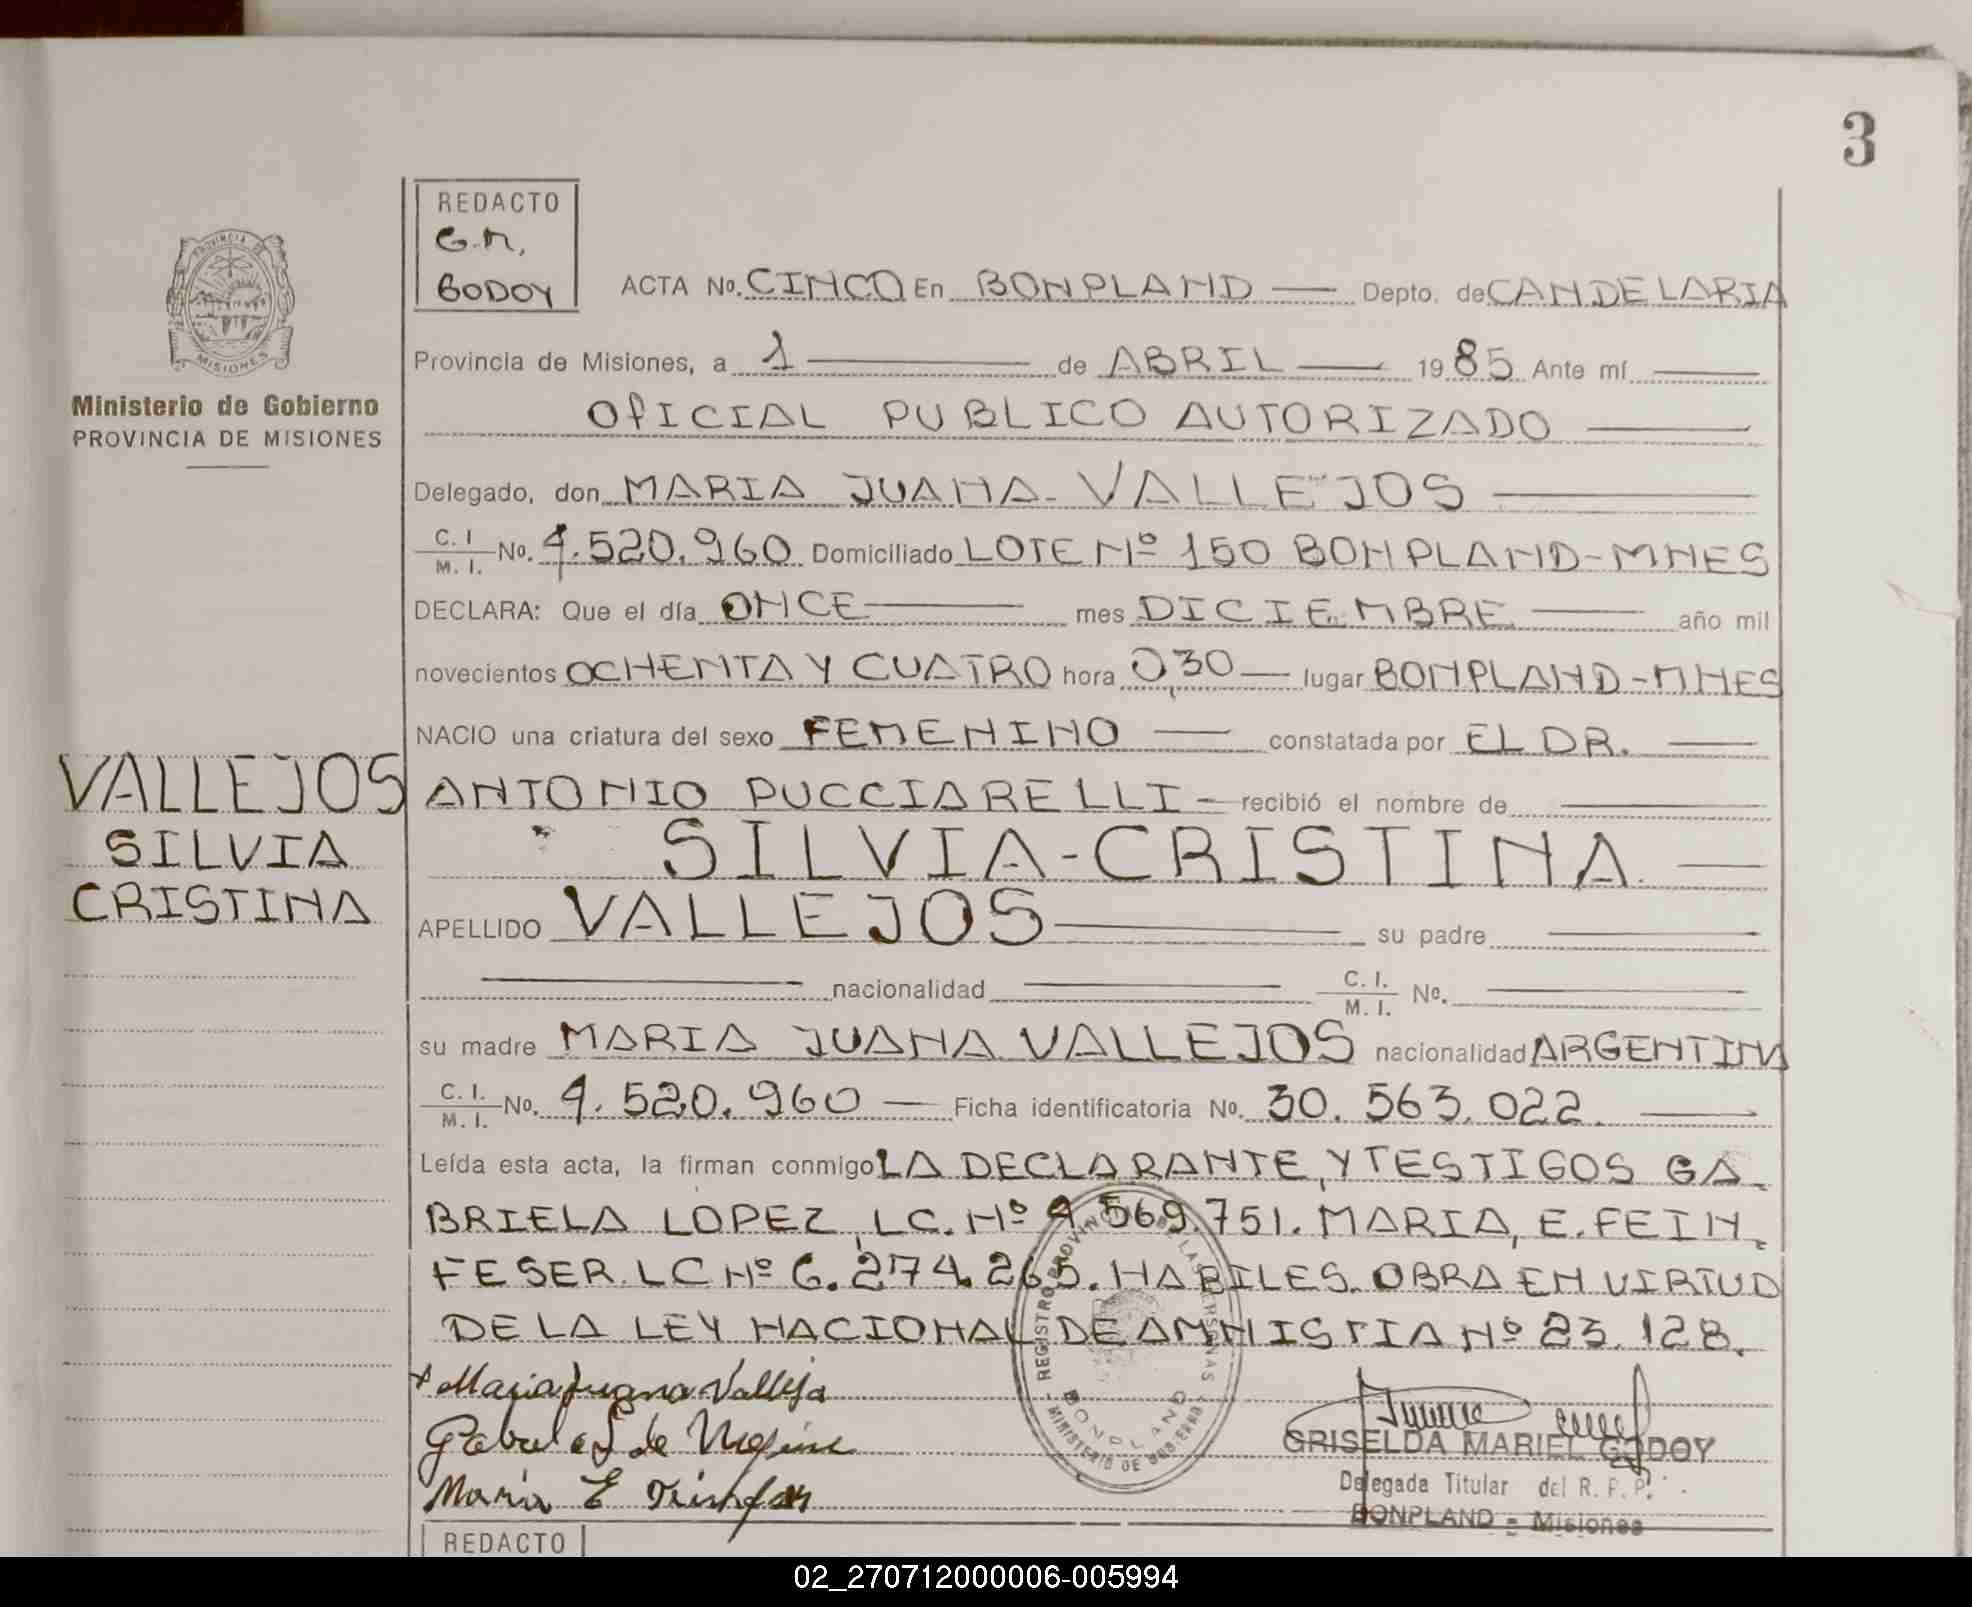 3
REDACTO
G.M.
GODOY
ACTA No. CINCO En BONPLAND — Depto. de CANDELARIA
PROVINCIA DE
MISIONES
Ministerio de Gobierno
PROVINCIA DE MISIONES
Provincia de Misiones, a 1 — de ABRIL — 1985 Ante mí —
OFICIAL PUBLICO AUTORIZADO —
Delegado, don MARIA JUANA VALLEJOS —
C. I. / M. I. No. 4.520.960 Domiciliado LOTE Nº 150 BONPLAND-MNES
DECLARA: Que el día ONCE — mes DICIEMBRE — año mil
novecientos OCHENTA Y CUATRO hora 0,30 — lugar BONPLAND-MNES
NACIO una criatura del sexo FEMENINO — constatada por EL DR. —
ANTONIO PUCCIARELLI — recibió el nombre de —
SILVIA-CRISTINA —
APELLIDO VALLEJOS — su padre —
— nacionalidad — C. I. / M. I. No. —
su madre MARIA JUANA VALLEJOS nacionalidad ARGENTINA
C. I. / M. I. No. 4.520.960 — Ficha identificatoria No. 30.563.022. —
Leída esta acta, la firman conmigo LA DECLARANTE, Y TESTIGOS GA-
BRIELA LOPEZ, LC. Nº 4.569.751. MARIA, E. FEIN-
FESER. LC Nº 6.274.265. HABILES. OBRA EN VIRTUD
DE LA LEY NACIONAL DE AMNISTIA Nº 23.128.
VALLEJOS
SILVIA
CRISTINA
Maria Juana Vallejo
Maria E
REGISTRO PROVINCIAL DE LAS PERSONAS
BONPLAND
MINISTERIO DE GOBIERNO
GRISELDA MARIEL GODOY
Delegada Titular del R. P. P.
BONPLAND - Misiones
REDACTO
02_270712000006-005994